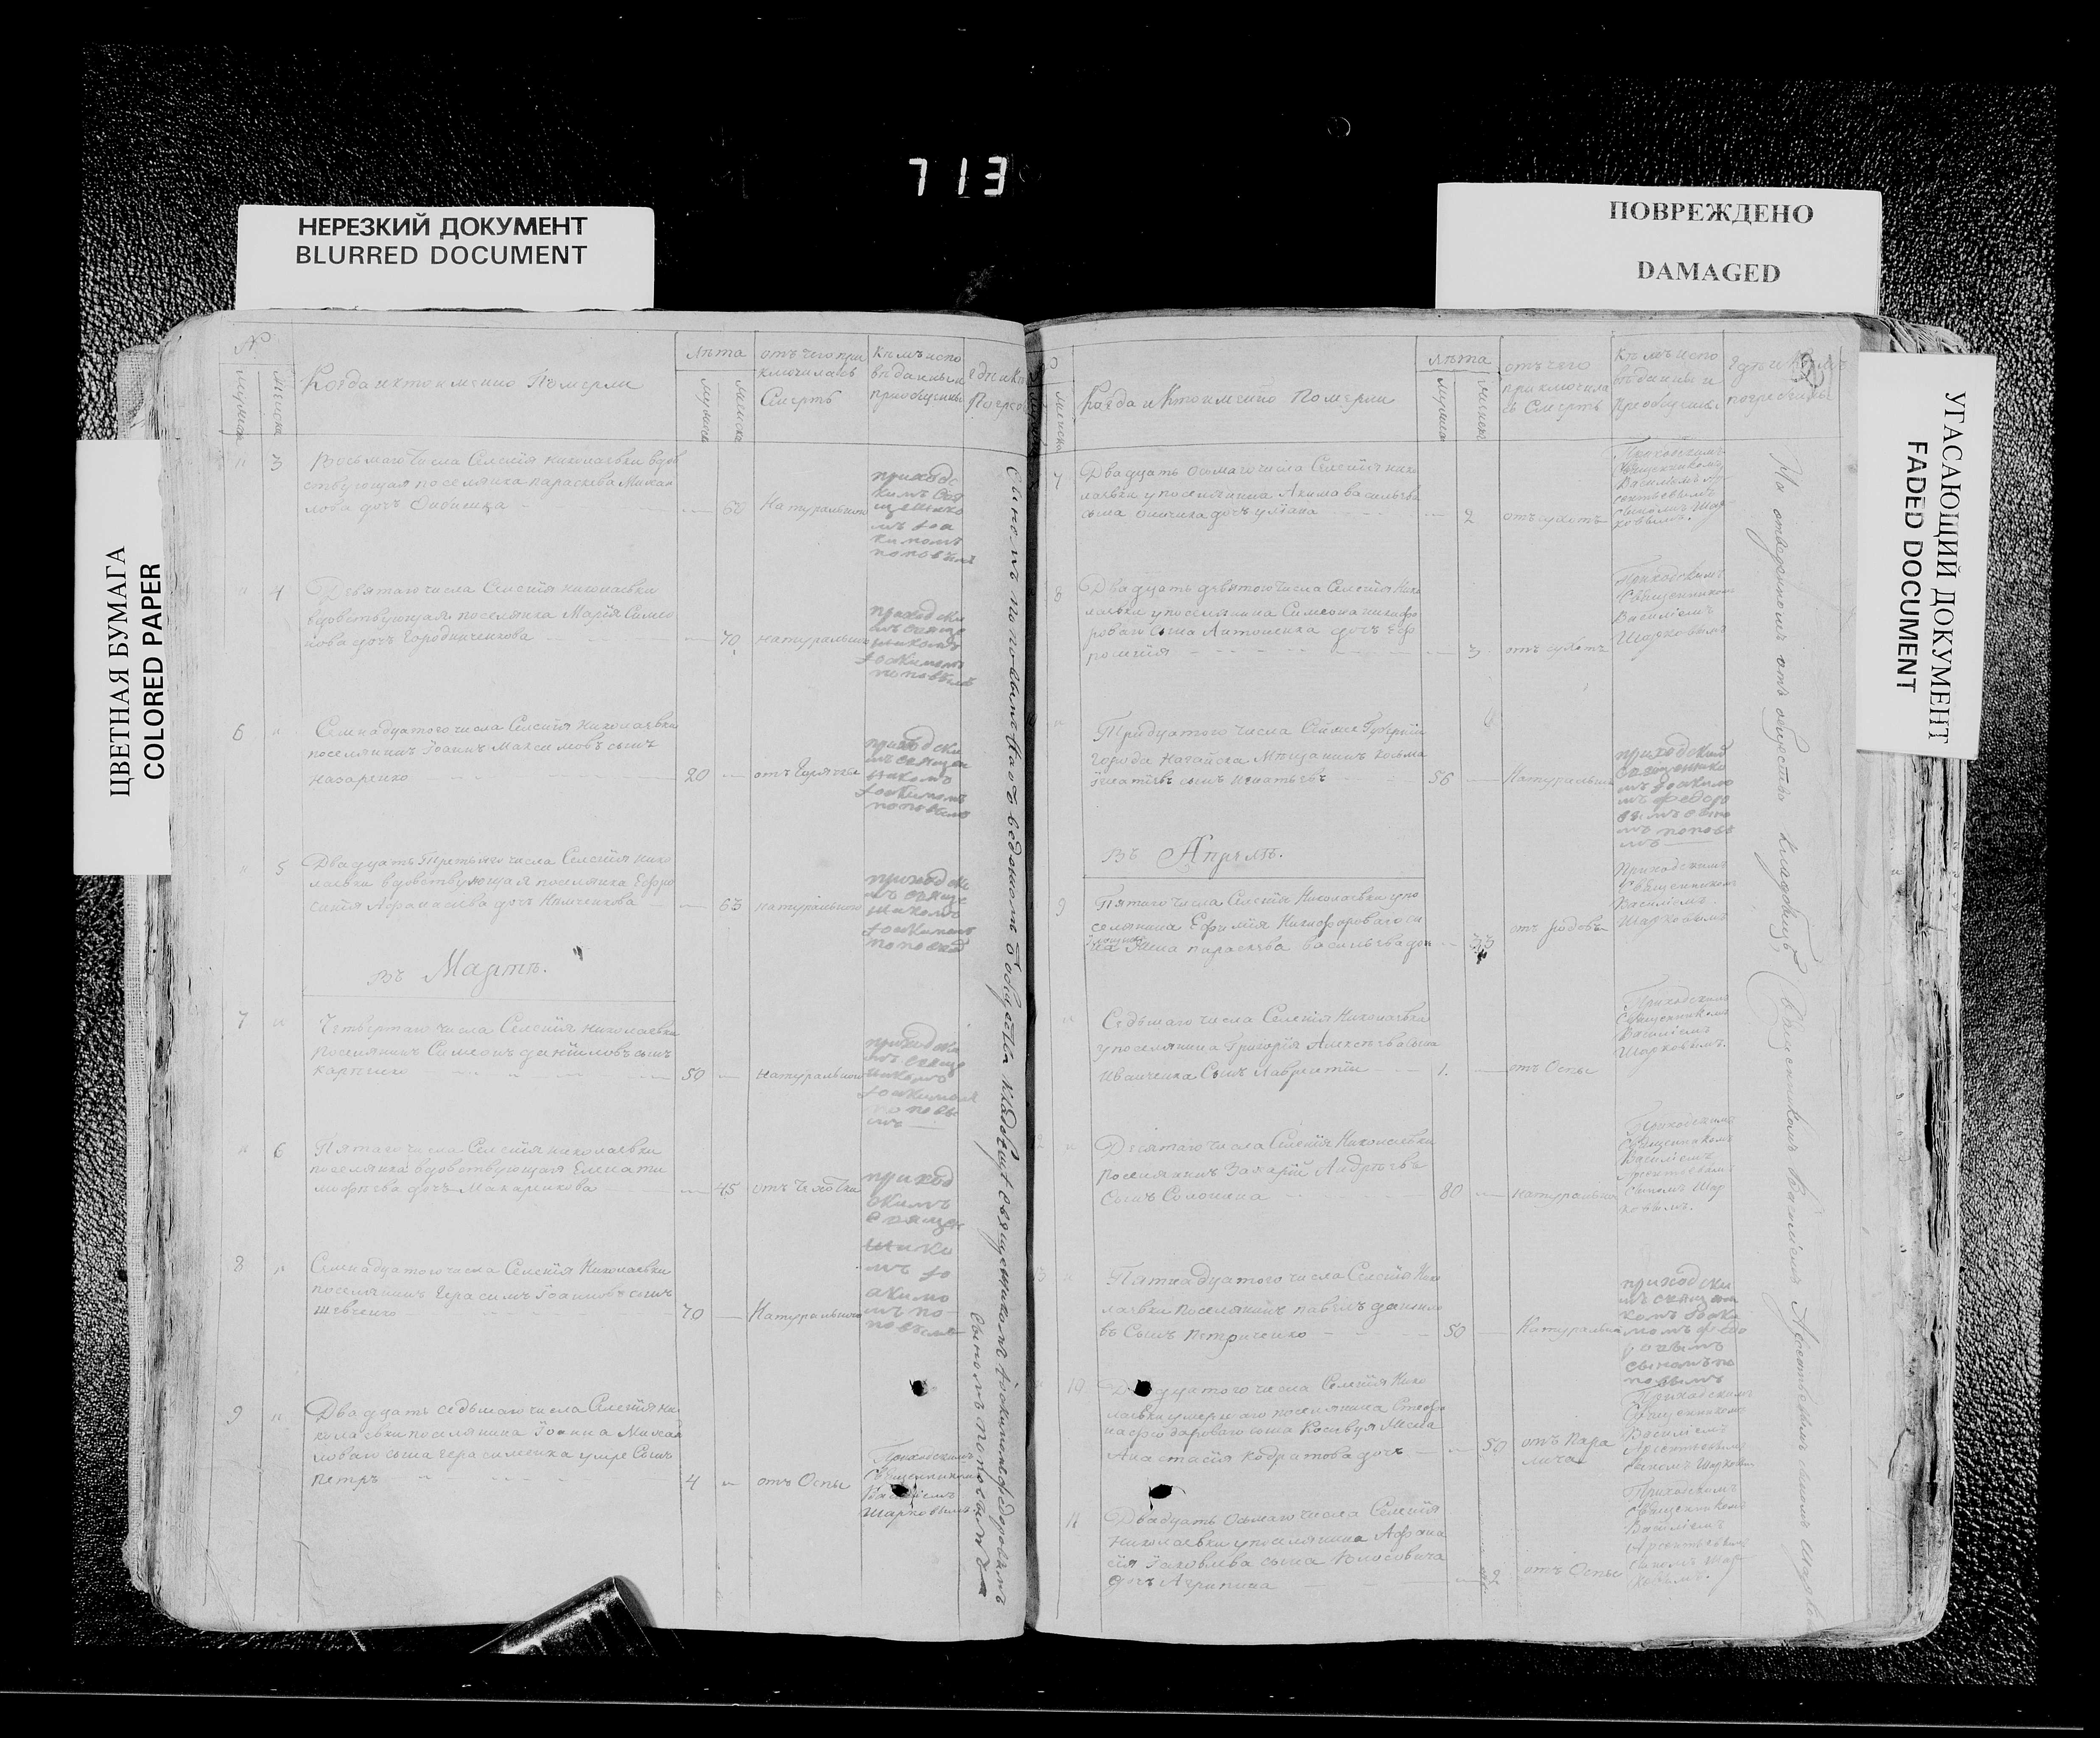 713
НЕРЕЗКИЙ ДОКУМЕНТ
BLURRED DOCUMENT
ПОВРЕЖДЕНО
DAMAGED
ЦВЕТНАЯ БУМАГА
COLORED PAPER
УГАСАЮЩИЙ ДОКУМЕНТ
FADED DOCUMENT
№
Когда и кто именно Померли
лѣта
отъ чего при
ключилась
Смерть
Кѣмъ испо
вѣданы и
приобщены
3
Восьмаго числа Селенїя николаевки вдов
ствующая поселянка параскева Михаи
лова дочь
60
Натурально
приходс
кимъ свя
щенико
мъ Іоа
кимомъ
поповымъ
4
Девятаго числа Селенїя николаевки
вдовствующая поселянка Марїя Симео
нова дочь Городниченкова
70
натурально
приходски
мъ свяще
никомъ
Іоакимомъ
поповымъ
6
Семнадцатого числа Селенїя николаевки
поселянинъ Іоаннъ Максимовъ сынъ
назаренко
20
отъ Горячки
приходски
мъ свящ
никомъ
Іоакимомъ
поповымъ
5
Двадцать Третьяго числа Селенїя нико
лаевки вдовствующая поселянка Евфро
синїя Афанасиева дочь Климченкова
63
натурально
приходски
мъ свяще
никомъ
Іоакимомъ
попов
Въ Мартѣ.
7
Четвертаго числа Селенїя николаевки
поселянинъ Симеонъ данїиловъ сынъ
карпенко
50
натурально
приходски
мъ свяще
никомъ
Іоакимомъ
поповы
мъ
6
Пятаго числа Селенїя николаевки
поселянка вдовствующая Елена ти
мофѣева дочь Макаренкова
45
отъ Чахотки
приход
скимъ
священ
нико
мъ Іо
акимо
мъ по
повымъ
8
Семнадцатого числа Селенїя Николаевки
поселянинъ Герасимъ Іоанновъ сынъ
Шевченко
70
Натурально
9
Двадцать седьмаго числа Селенїя ни
колаевки поселянина Іоанна Михаи
ловаго сына герасименка умре Сынъ
петръ
4
отъ Оспы
Приходскимъ
Священникомъ
Василїемъ
Шарковымъ
Сыномъ поповымъ На отведенномъ отъ общества кладбищѣ священникомъ Іоакимомъ федоровымъ
Сыномъ поповымъ
Когда и Кто именно Померли
лѣта
отъ чего
приключила
сь Смерть
Кѣмъ испо
вѣданы и
приобщены
Гдѣ и Кѣмъ
погребены
7
Двадцать осьмаго числа Селенїя нико
лаевки у поселянина Акима васильева
сына дочь улїана
2
отъ сухотъ
Приходскимъ
Священникомъ
Василїемъ Ар
сентьевымъ
сыномъ Шар
ковымъ.
8
Двадцать девятого числа Селенїя Нико
лаевки у поселянина Симеона никифо
роваго сына Антоненка дочь Евф
росинїя
3
отъ сухотъ
Приходскимъ
Священникомъ
Василїемъ
Шарковымъ
Тридцатого числа Губернїи
Города Ногайска Мѣщанинъ козьма
Игнатїевъ сынъ Игнатьевъ
56
Натурально
приходским
священнико
мъ Іоакимо
мъ федоро
вымъ сыно
мъ поповы
мъ
Въ Апрѣлѣ.
9
Пятаго числа Селенїя Николаевки у по
селянина Ефимїя Никифороваго сы
на Жена параскева васильева доч
отъ родовъ
Приходскимъ
Священникомъ
Василїемъ
Шарковымъ
Седьмаго числа Селенїя Николаевки
у поселянина Григорїя Алексѣева сына
Иванченка Сынъ Лаврентїй
1.
отъ Оспы
Приходскимъ
Священникомъ
Василїемъ
Шарковымъ.
Десятаго числа Селенїя Николаевки
поселянинъ Захарїй Андрѣевъ
Сынъ Солонина
80
натурально
Приходскимъ
Священникомъ
Василїемъ
Арсентьевымъ
Сыномъ Шар
ковымъ.
Пятнадцатого числа Селенїя Нико
лаевки поселянинъ павелъ данило
въ Сынъ петриченко
50
Натурально
приходски
мъ священ
комъ Іоаки
момъ федо
ровымъ
сыномъ по
повымъ
10
Двадцатого числа Селенїя Нико
лаевки умершаго поселянина Стефа
на феодороваго сына Жена
Анастасїя Кодратова дочь
50
отъ Пара
лича
Приходскимъ
Священникомъ
Василїемъ
Арсентьевымъ
Сыномъ Шарковым
11
Двадцать Осьмаго числа Селенїя
Николаевки у поселянина Афана
сїя Іаковлева сына Колосовича
дочь Агрипина
2
отъ Оспы
Приходскимъ
Священникомъ
Василїемъ
Арсентьевымъ
Сыномъ Шар
ковымъ.
На отведенномъ отъ общества кладбищѣ Священникомъ Василїемъ Арсентьевымъ сыномъ Шарко